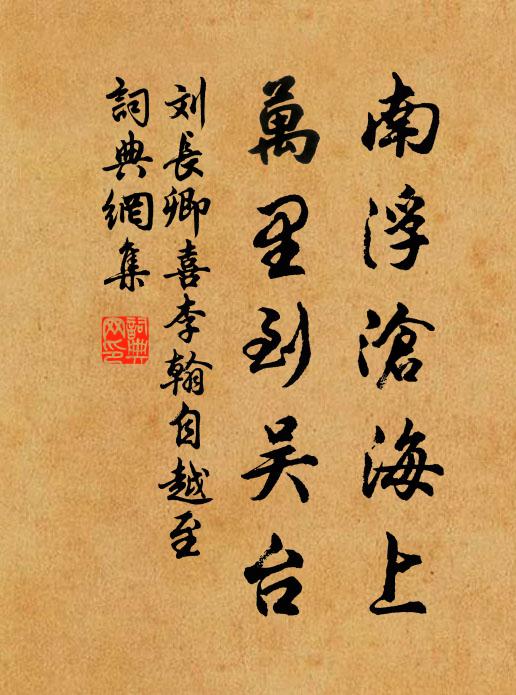 南浮滄海上
萬里到吴台
刘長卿喜李翰自越至
詞典網集
詞典網印